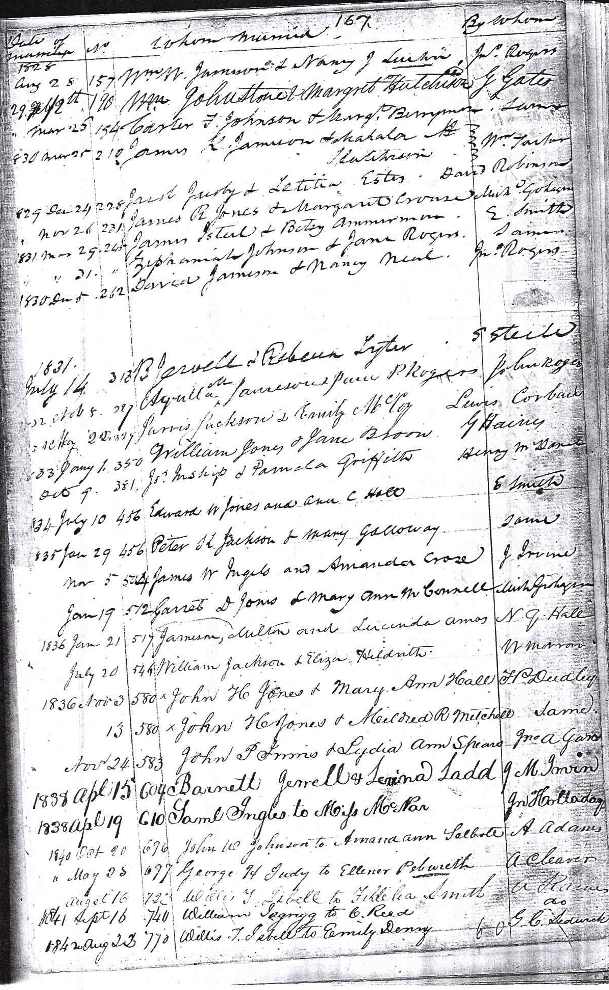 Date of marriage No Whom married 167. By Whom
1828
Aug 28 157 Wm W. Jameson & Nancy J Jno. Rogers
190 Wm Johnstone & Margret Hutchison G Gates
" Mar 25 154 Carter T Johnson & Margt. Berryman Same
1830 Mar 25 210 James L Jameson & Mahala M Wm Taylor
Hutchison
1829 Dec 24 228 & Letitia Estes David Robinson
" Nov 26 231 James R Jones & Margaret Crouse
1831 Mar 29 James Steel & Betsy Ammerman E. Smith
" " 31. " Zephaniah Johnson & Jane Rogers. Same
1830 Dec 5 262 David Jameson & Nancy Neal. Jno. Rogers
1831.
July 14 313 B Jewell & Rebecca S Steele
Aquilla Jameson & P Rogers John Rogers
Jarvis Jackson & Emily McCoy Lewis Corban
1833 Jany 1 350 William Jones & Jane Broon G Haines
Oct 9. 381. Jas. Inskip & Pamela Griffith Henry McDanel
1834 July 10 456 Edward W Jones and Ann C Hall E Smith
1835 Jan 29 456 Peter K Jackson & Mary Galloway. Same
Nov 5 504 James W Ingels and Amanda Croze J Irvine
Jan 19 512 Garret D Jones & Mary Ann McConnell
1836 Jan 21 517 Jameson, Milton and Lucinda Amos N. G. Hall
July 20 546 William Jackson & Eliza Hildrith W Morrow
1836 Nov 3 580 x John H Jones & Mary Ann Hall T P Dudley
13 580 x John H Jones & Mildred R Mitchell Same.
Nov 24 583 John P Innis & Lydia Ann Spears Jno A Gano
1838 Apl 15 604 Barnett Jerrell & Lerina Ladd J M Irvin
1838 Apl 19 610 Saml Ingles to Miss McNar Jno Holladay
1840 Oct 20 696 John W Johnson to Amanda Ann Talbott A Adams
" May 23 697 George H Judy to Ellener Pebworth A Cleaver
August 16 Willis T Isbell to Smith
1841 Sept 16 740 William Tegrigg to C Reed do
1842 Aug 23 770 Willis T. Isbell to Emily Denny G. C. Sedwick